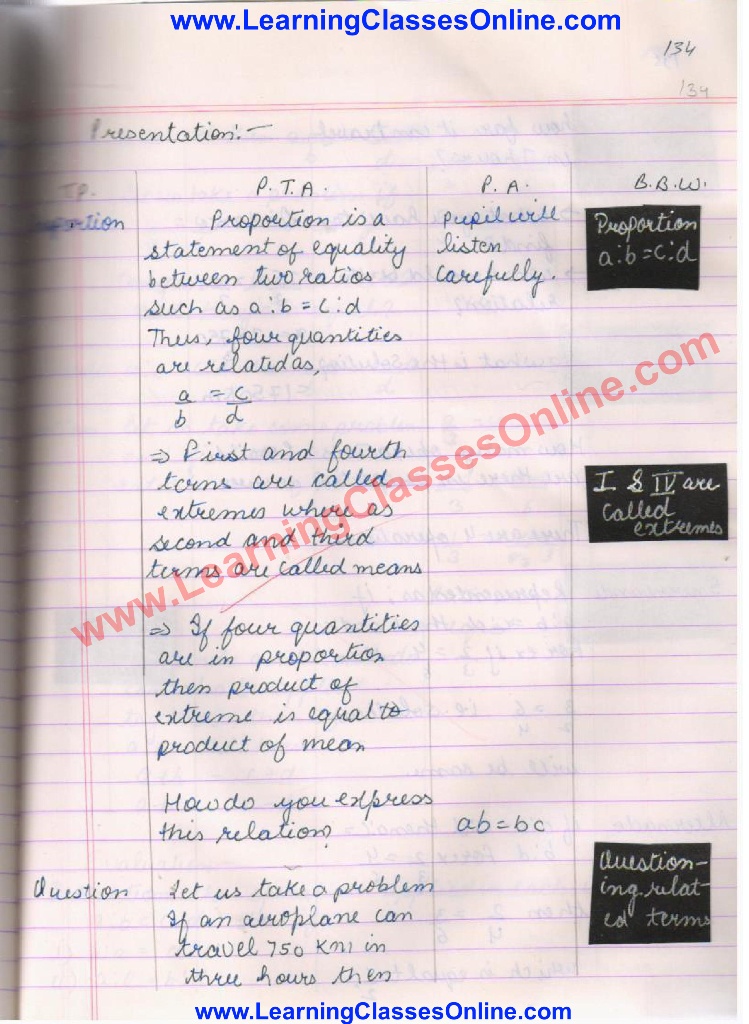 www.LearningClassesOnline.com
134
134
Presentation:-
P.T.A. P.A. B.B.W.
Proportion is a
statement of equality
between two ratios
such as a:b = c:d
Thus, four quantities
are related as,
a/b = c/d
⇒ First and fourth
terms are called
extremes where as
second and third
terms are called means
⇒ If four quantities
are in proportion
then product of
extreme is equal to
product of mean
How do you express
this relation?
Question
Let us take a problem
If an aeroplane can
travel 750 Km in
three hours then
Pupil will
listen
carefully.
ab = bc
Proportion
a:b = c:d
I & IV are
called
extremes
Question-
ing relat-
ed terms
www.LearningClassesOnline.com
www.LearningClassesOnline.com